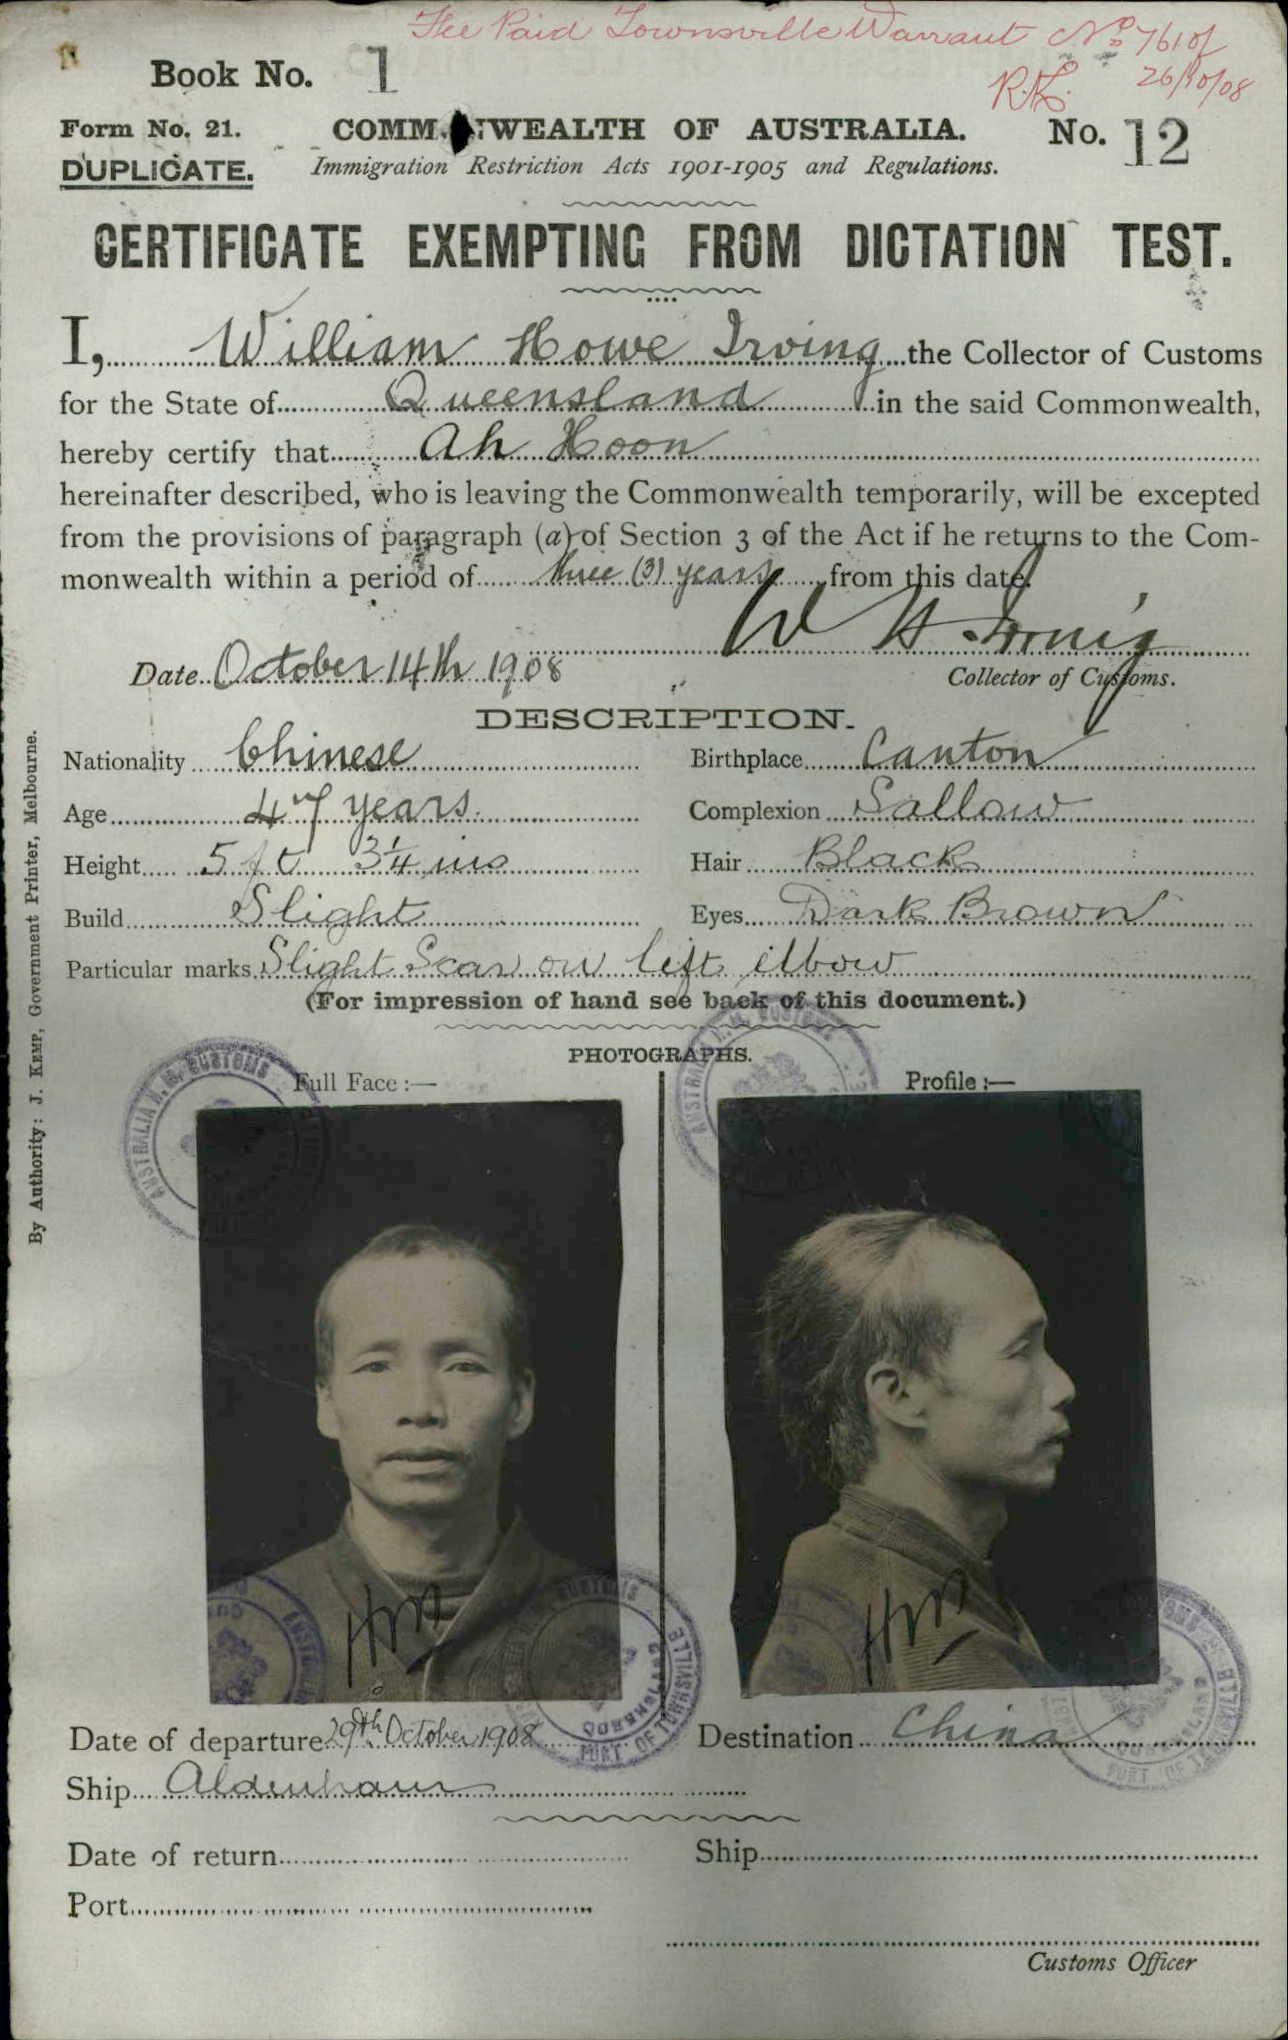 Fee Paid Townsville Warrant No 761 of
26/10/08
Book No. 1
Form No. 21.
COMM WEALTH OF AUSTRALIA.
No. 12
DUPLICATE.
Immigration Restriction Acts 1901-1905 and Regulations.
CERTIFICATE EXEMPTING FROM DICTATION TEST.
I, William Howe Irving the Collector of Customs
for the State of Queensland in the said Commonwealth,
hereby certify that Ah Hoon
hereinafter described, who is leaving the Commonwealth temporarily, will be excepted
from the provisions of paragraph (a) of Section 3 of the Act if he returns to the Com-
monwealth within a period of three (3) years from this date.
W H Irving
Date October 14th 1908
Collector of Customs.
DESCRIPTION.
Nationality Chinese Birthplace Canton
Age 47 years. Complexion Sallow
Height 5 ft 3 1/4 ins Hair Black
Build Slight Eyes Dark Brown
Particular marks Slight Scar on left elbow
(For impression of hand see back of this document.)
PHOTOGRAPHS.
Full Face :— Profile :—
AUSTRALIA H. M. CUSTOMS
AUSTRALIA H. M. CUSTOMS
CUSTOMS
QUEENSLAND
PORT OF TOWNSVILLE
QUEENSLAND
PORT OF TOWNSVILLE
Date of departure 29th October 1908 Destination China
Ship Aldenham
Date of return Ship
Port
Customs Officer
By Authority: J. KEMP, Government Printer, Melbourne.